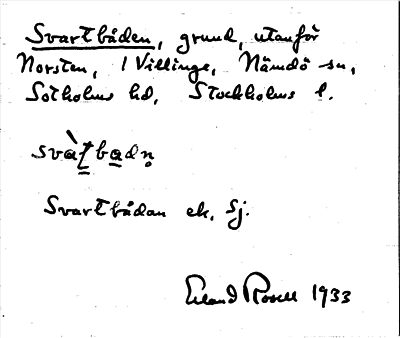 Svartbåden, grund, utanför
Norsten, / Villinge, Nämdö sn,
Sotholms hd, Stockholms l.
svàt̲ba̲dn̥
Svartbådan ek. Sj.
Erland Rosell 1933